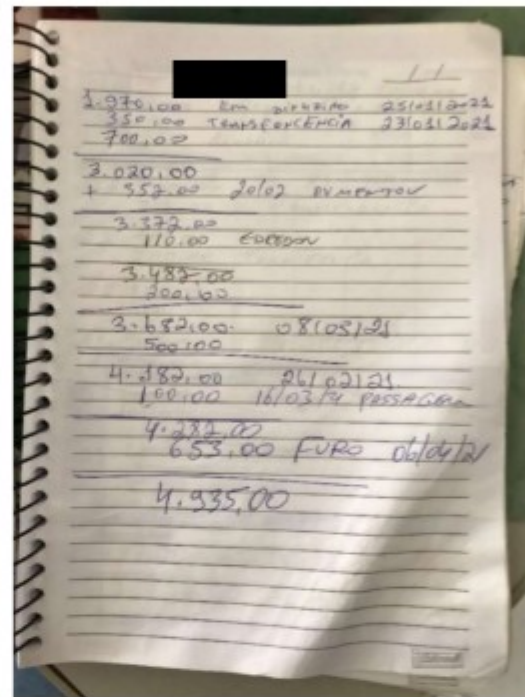 / /
1.970,00 Em DINHEIRO 25/01/2021
350,00 TRANSFERÊNCIA 23/01/2021
700,00
3.020,00
+ 352,00 20/02 AUMENTOU
3.372,00
110,00 EDREDON
3.482,00
200,00
3.682,00. 08/03/21
500,00
4.182,00 26/02/21
100,00 16/03/21 PASSAGEM
4.282,00
653,00 FURO 06/04/21
4.935,00